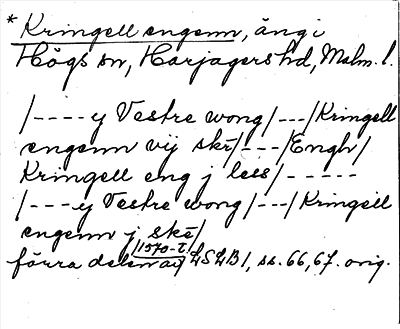 * Kringell engenn, äng i
Högs sn, Harjagers hd, Malm. l.
/----y Vestre wong/---/Kringell
engenn vij skē/---/Engh/
Kringell eng j less/-----
/---y Vestre wong/---/Kringell
engenn j skē/
förra delen av 1570-t. LSLB 1, ss. 66, 67. orig.